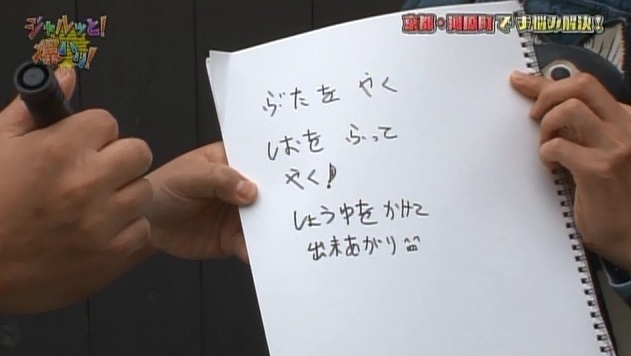 ジャルッと!
爆ハッ!
京都・河原町でお悩み解決!
ぶたを やく
しおを ふって
やく!
しょうゆを かけて
出来あがり